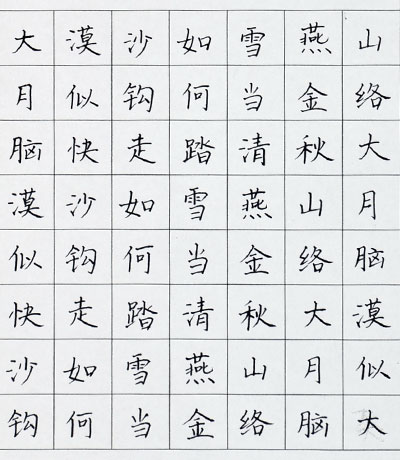 大漠沙如雪燕山
月似钩何当金络
脑快走踏清秋大
漠沙如雪燕山月
似钩何当金络脑
快走踏清秋大漠
沙如雪燕山月似
钩何当金络脑大